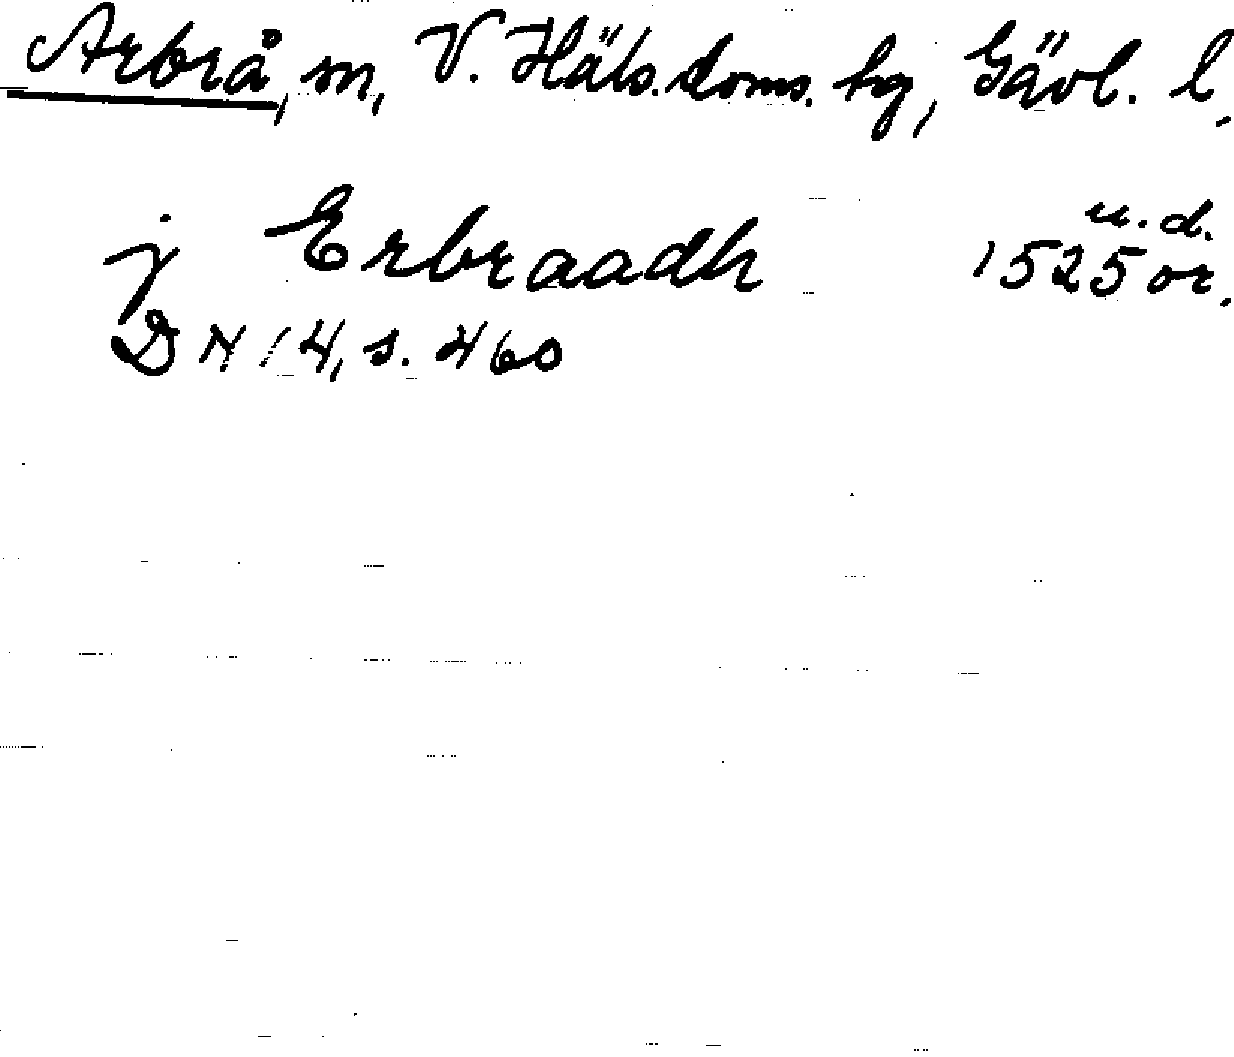 Arbrå, sn, V. Häls. doms. hg, Gävl. l.
j Erbraadh 1525 u.d. or.
DN 14, s. 460